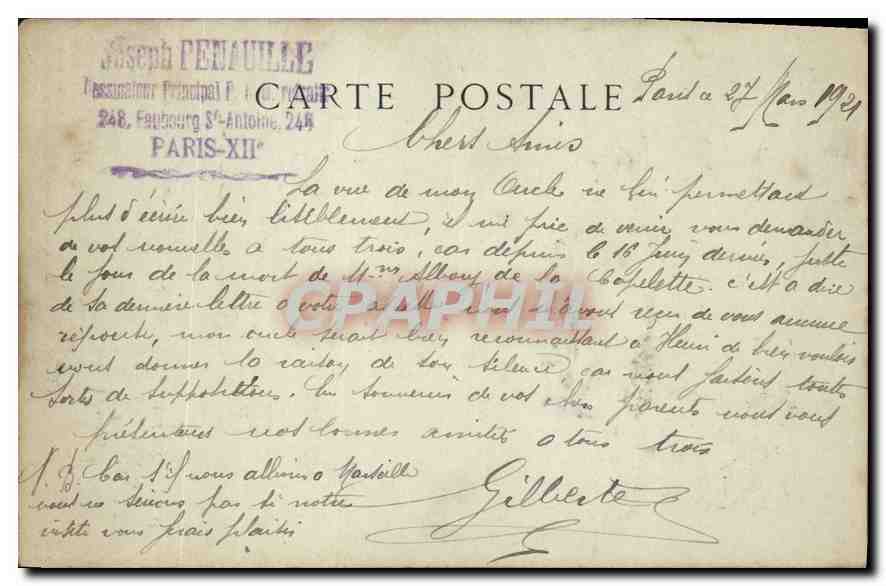 Joseph FENAUILLE
Dessinateur Principal P.
248, Faubourg St-Antoine, 248
PARIS-XIIe
CARTE POSTALE
Paris le 27 Mars 1921
Chers Amis
La vue de mon Oncle ne lui permettant
plus d'écrire bien lisiblement, il me prie de venir vous demander
de vos nouvelles a tous trois, car depuis le 16 Juin dernier, juste
le jour de la mort de Mme Albouy de la Capelette. c'est a dire
de sa dernière lettre a votre nous n'avons reçu de vous aucune
réponse, mon oncle serait bien reconnaissant a Henri de bien vouloir
nous donner la raison de son silence car nous faisons toutes
sortes de suppositions. En souvenir de vos chers parents nous vous
présentons nos bonnes amitiés a tous trois
Gilberte
N. B. Car s'il nous allions a Marseille
nous ne serions pas si notre
visite vous ferais plaisir
CPAPHIL